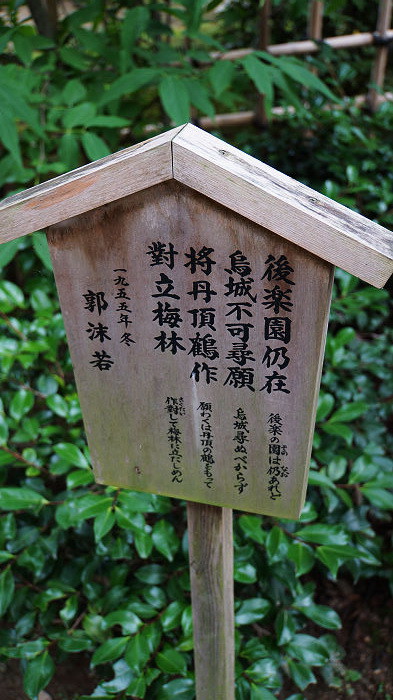 後楽園仍在
後楽の園は仍あれど
烏城不可尋願
烏城尋ぬべからず
将丹頂鶴作
願わくは丹頂の鶴をもって
對立梅林
作對して梅林に立たしめん
一九五五年 冬
郭沫若